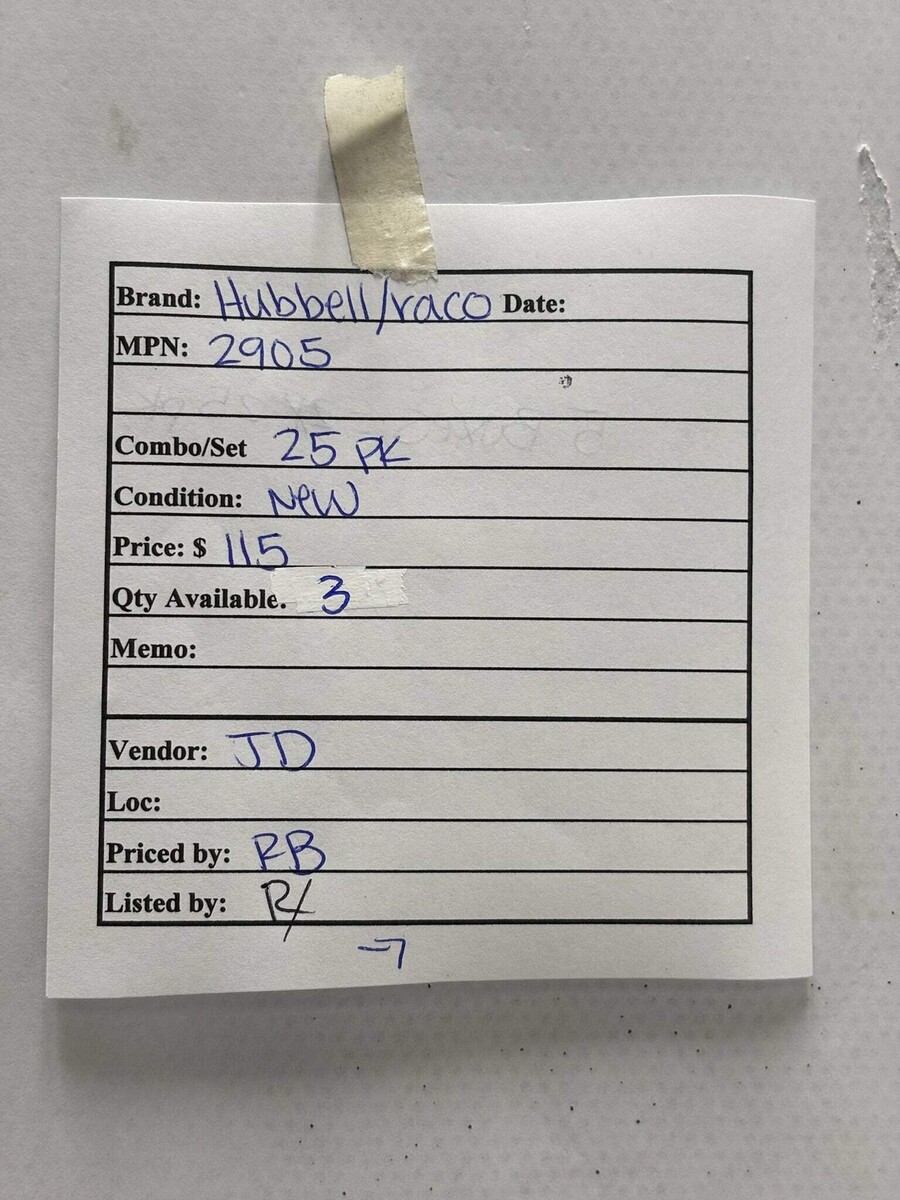 Brand: Hubbell/raco Date:
MPN: 2905
Combo/Set 25 PK
Condition: New
Price: $ 115
Qty Available. 3
Memo:
Vendor: JD
Loc:
Priced by: RB
Listed by:
-7